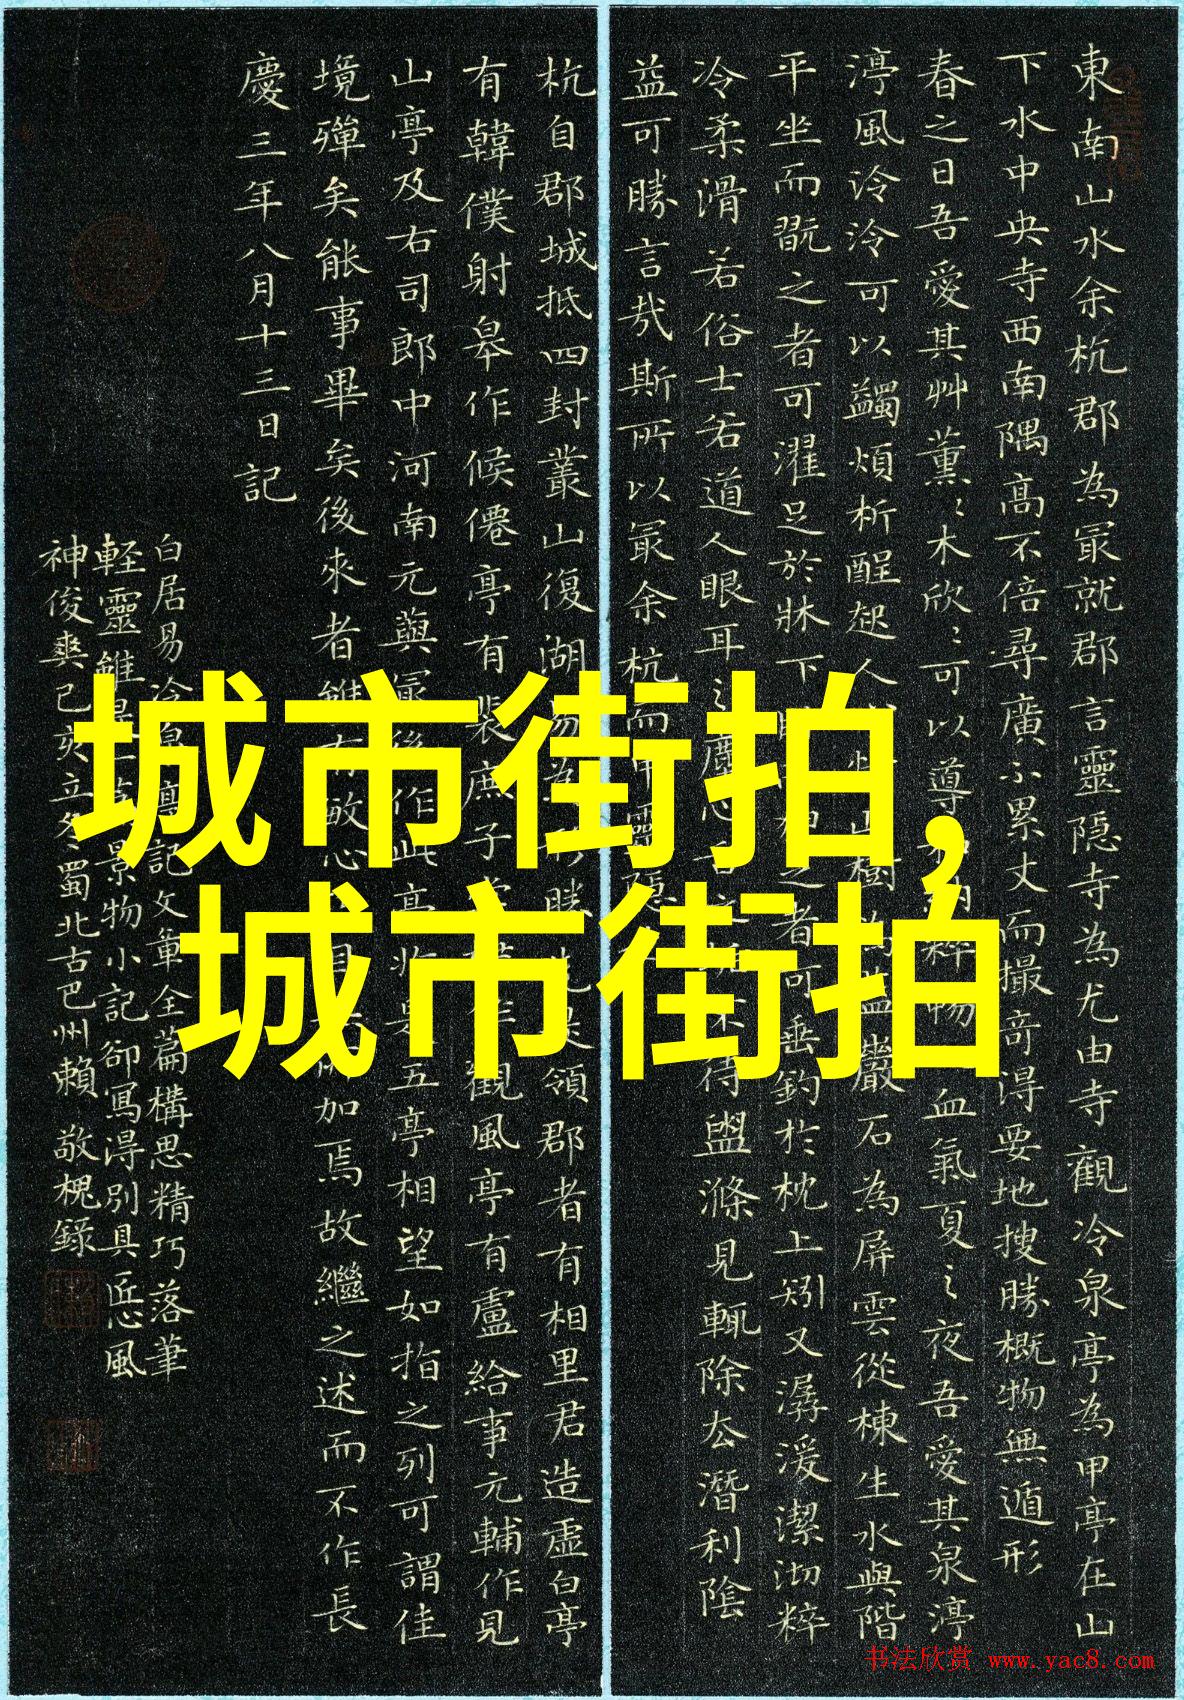 東南山水余杭郡為冣就郡言靈隠寺為尤由寺觀冷泉亭為甲亭在山
下水中央寺西南隅高不倍尋廣不累丈而撮奇得要地搜勝概物無遁形
春之日吾愛其艸薰〻木欣〻可以導和納粹暢血氣夏之夜吾愛其泉渟
渟風泠泠可以蠲煩析酲起人心情山樹為蓋巖石為屏雲從棟生水與階
平坐而翫之者可濯足於牀下臥而狎之者可垂釣於枕上矧又潺湲潔沏粹
冷柔滑若俗士若道人眼耳之塵心舌之垢不待盥滌見輒除去潛利陰
益可勝言哉斯所以冣余杭而甲靈隠也
杭自郡城抵四封叢山復湖易為形勝先是領郡者有相里君造虛白亭
有韓僕射皋作候僊亭有裴庶子棠棣作觀風亭有盧給事元輔作見
山亭及右司郎中河南元藇冣後作此亭於是五亭相望如指之列可謂佳
境殫矣能事畢矣後來者雖有敏心巧目無所加焉故繼之述而不作長
慶三年八月十三日記
白居易冷泉亭記文章全篇構思精巧落筆
軽靈雖是一篇景物小記卻寫得別具匠心風
神俊爽己亥立冬蜀北古巴州賴敬槐錄
城市街拍,
城市街拍
书法欣赏 www.yac8.com